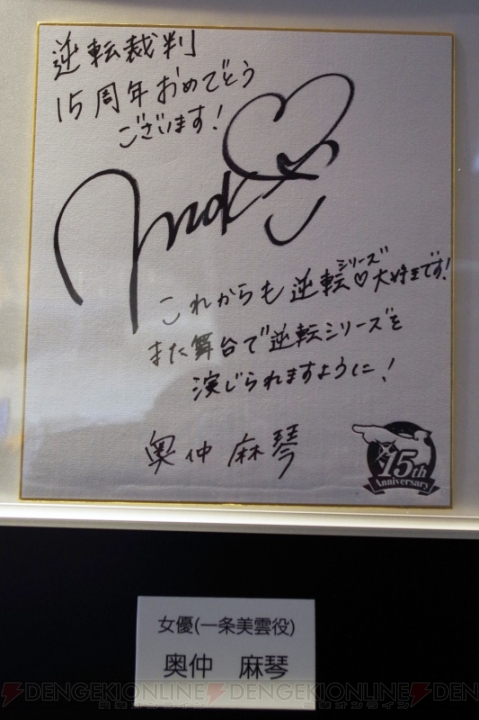 逆転裁判
15周年おめでとう
ございます!
これからも逆転シリーズ♡大好きです!
また舞台で逆転シリーズを
演じられますように!
奥仲 麻琴
15th
Anniversary
女優(一条美雲役)
奥仲 麻琴
DENGEKIONLINE DENGEKIONLINE